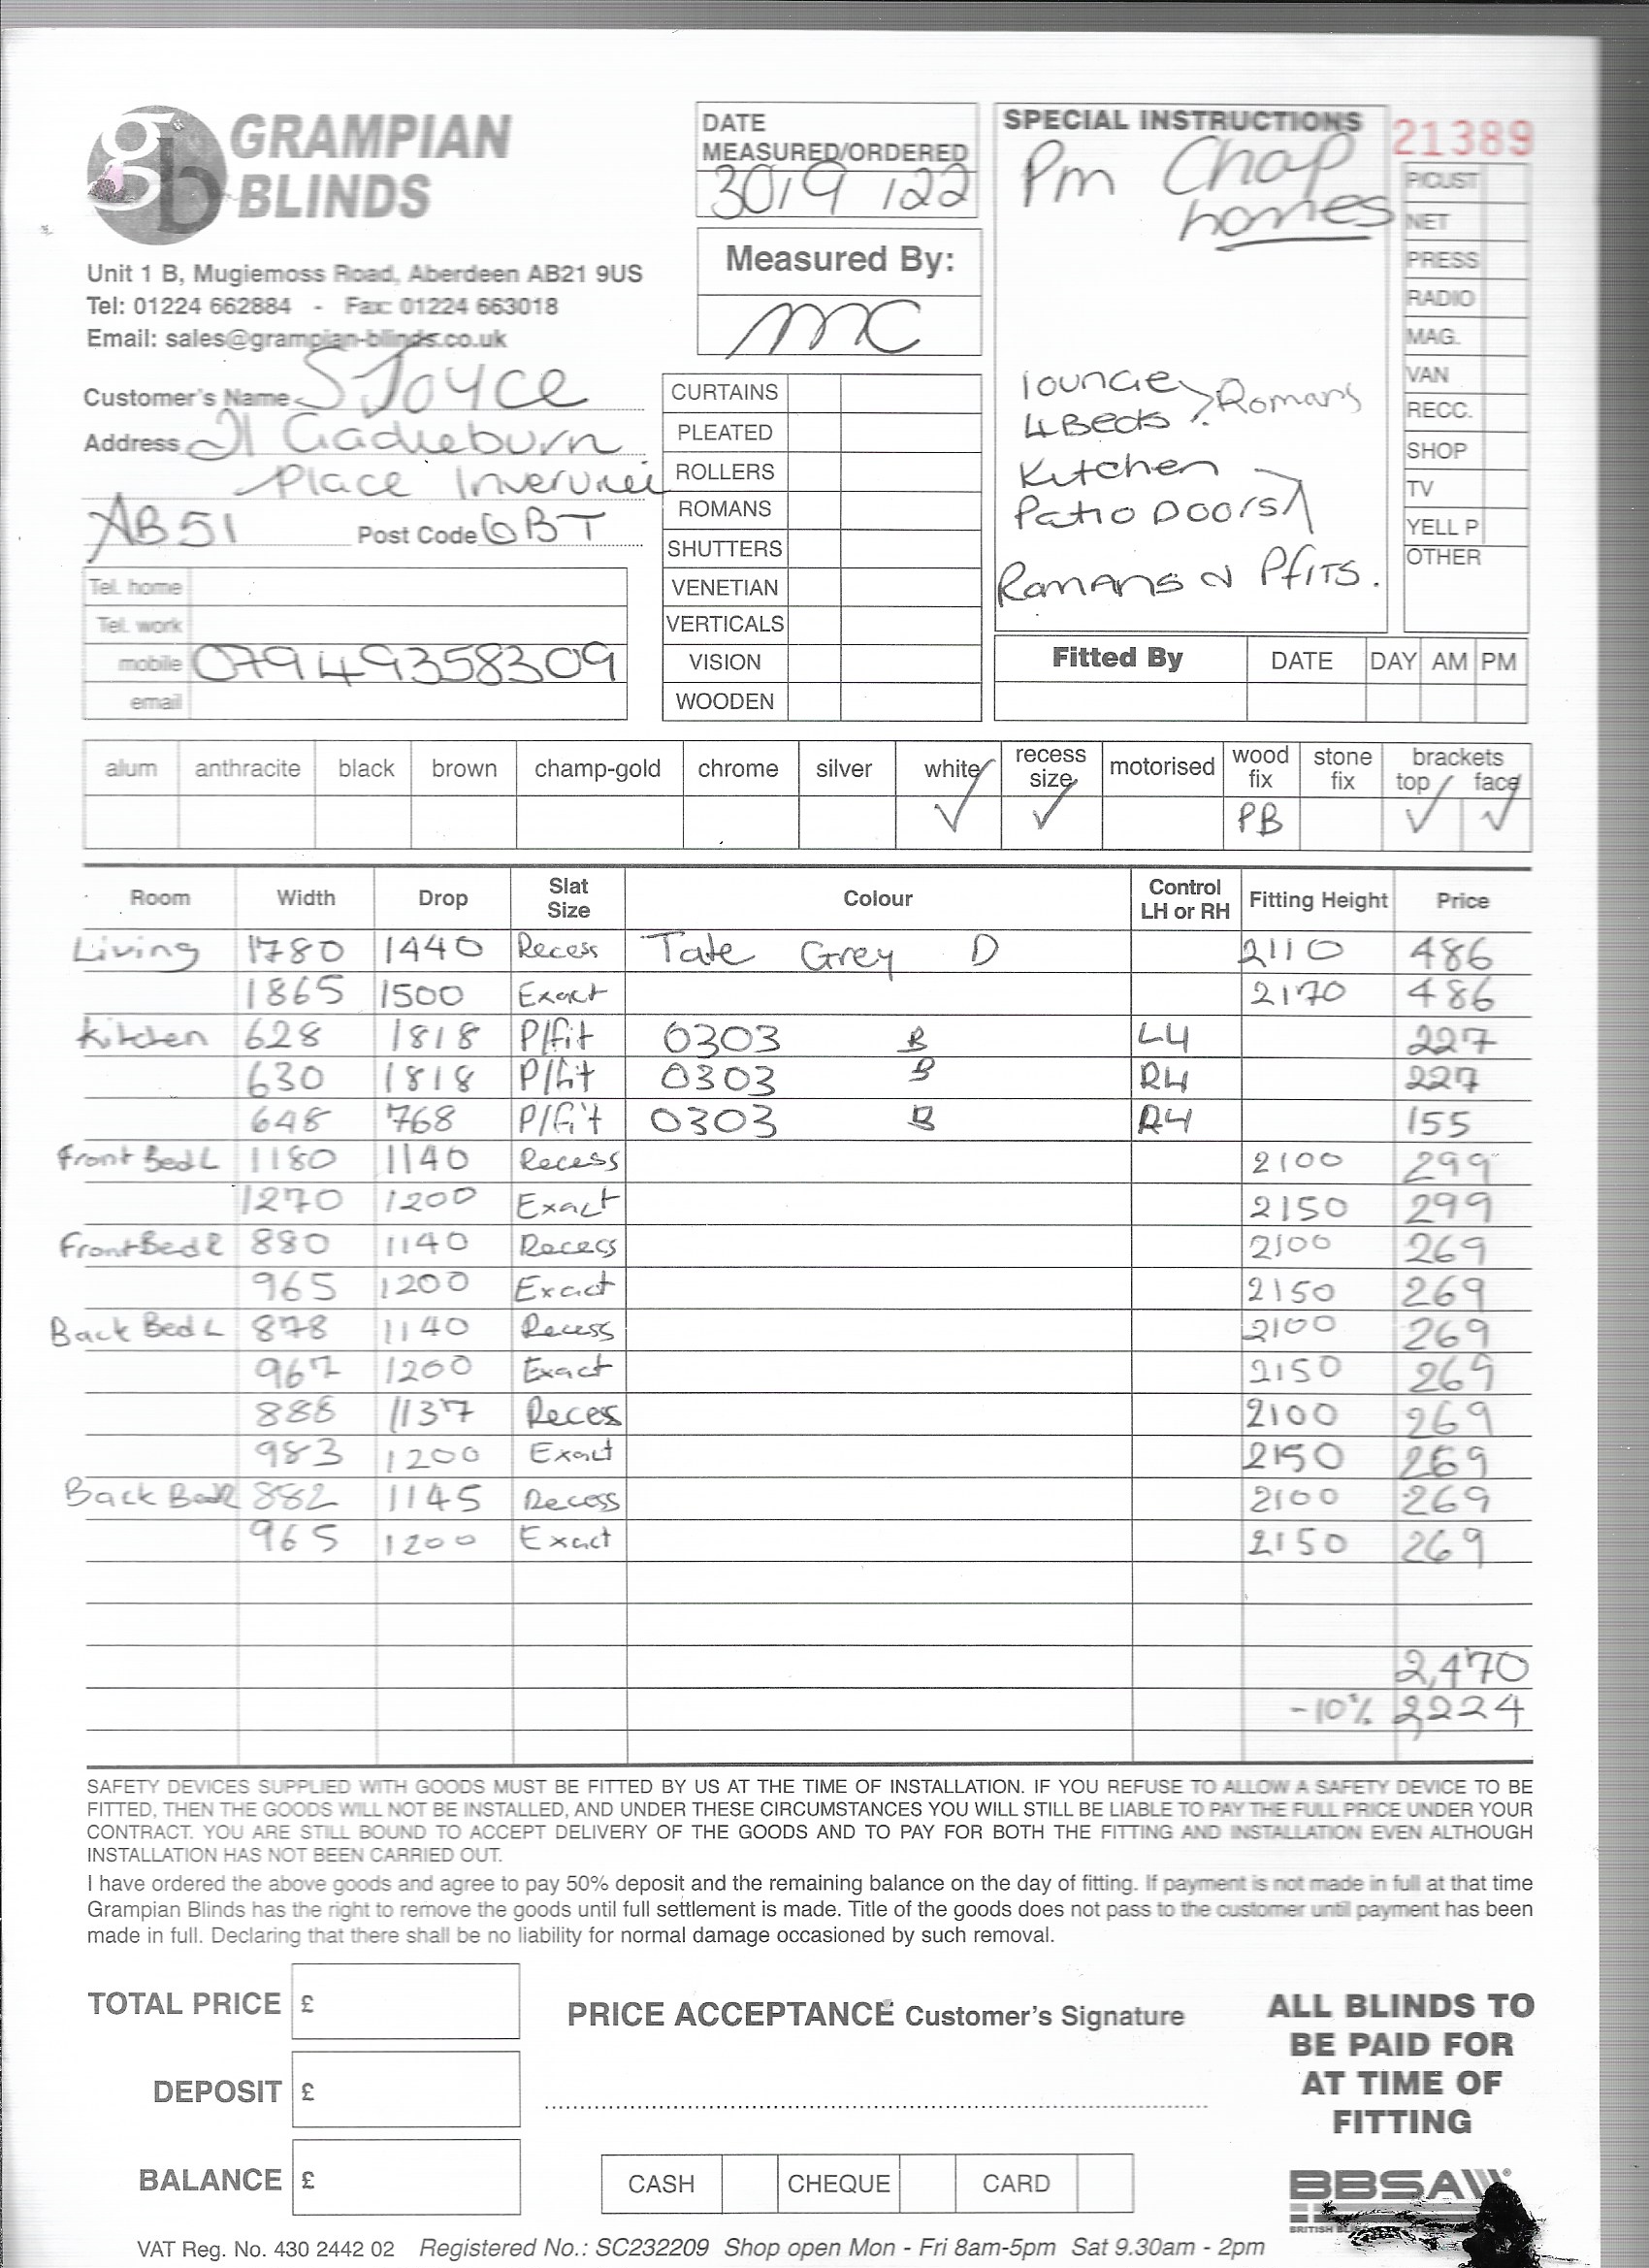 GRAMPIAN
BLINDS
Unit 1 B, Mugiemoss Road, Aberdeen AB21 9US
Tel: 01224 662884 - Fax: 01224 663018
Email: sales@grampian-blinds.co.uk
Customer's Name S Joyce
Address 21 Gadieburn
Place Inverurie
AB51 Post Code 6BT
Tel. home
Tel. work
mobile 07949358309
email
DATE
MEASURED/ORDERED
30/9/22
Measured By:
MC
CURTAINS
PLEATED
ROLLERS
ROMANS
SHUTTERS
VENETIAN
VERTICALS
VISION
WOODEN
SPECIAL INSTRUCTIONS
Pm Chap
homes
lounge
4 Beds Romans
Kitchen
Patio Doors
Romans Pfits.
21389
P/CUST
NET
PRESS
RADIO
MAG.
VAN
RECC.
SHOP
TV
YELL P
OTHER
Fitted By DATE DAY AM PM
alum anthracite black brown champ-gold chrome silver white recess size motorised wood fix stone fix brackets top face
✓ ✓ PB ✓ ✓
Room Width Drop Slat Size Colour Control LH or RH Fitting Height Price
Living 1780 1440 Recess Tate Grey D 2110 486
1865 1500 Exact 2170 486
Kitchen 628 1818 P/fit 0303 B L4 227
630 1818 P/fit 0303 B R4 227
648 768 P/fit 0303 B R4 155
Front Bed L 1180 1140 Recess 2100 299
1270 1200 Exact 2150 299
Front Bed R 880 1140 Recess 2100 269
965 1200 Exact 2150 269
Back Bed L 878 1140 Recess 2100 269
967 1200 Exact 2150 269
888 1137 Recess 2100 269
983 1200 Exact 2150 269
Back Bed R 882 1145 Recess 2100 269
965 1200 Exact 2150 269
2,470
-10% 2224
SAFETY DEVICES SUPPLIED WITH GOODS MUST BE FITTED BY US AT THE TIME OF INSTALLATION. IF YOU REFUSE TO ALLOW A SAFETY DEVICE TO BE
FITTED, THEN THE GOODS WILL NOT BE INSTALLED, AND UNDER THESE CIRCUMSTANCES YOU WILL STILL BE LIABLE TO PAY THE FULL PRICE UNDER YOUR
CONTRACT. YOU ARE STILL BOUND TO ACCEPT DELIVERY OF THE GOODS AND TO PAY FOR BOTH THE FITTING AND INSTALLATION EVEN ALTHOUGH
INSTALLATION HAS NOT BEEN CARRIED OUT.
I have ordered the above goods and agree to pay 50% deposit and the remaining balance on the day of fitting. If payment is not made in full at that time
Grampian Blinds has the right to remove the goods until full settlement is made. Title of the goods does not pass to the customer until payment has been
made in full. Declaring that there shall be no liability for normal damage occasioned by such removal.
TOTAL PRICE £
DEPOSIT £
BALANCE £
PRICE ACCEPTANCE Customer's Signature
CASH CHEQUE CARD
ALL BLINDS TO
BE PAID FOR
AT TIME OF
FITTING
BBSA
BRITISH
VAT Reg. No. 430 2442 02 Registered No.: SC232209 Shop open Mon - Fri 8am-5pm Sat 9.30am - 2pm